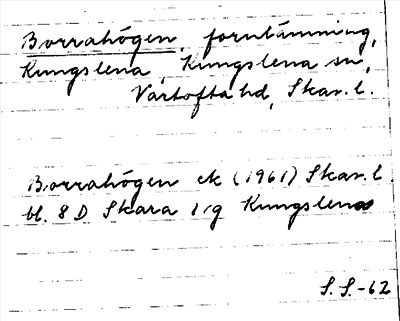 Borrahögen, fornlämning,
Kungslena, Kungslena sn,
Vartofta hd, Skar. l.
Borrahögen ek (1961) Skar. l.
bl. 8 D Skara 1:g Kungslena
S. S.-62